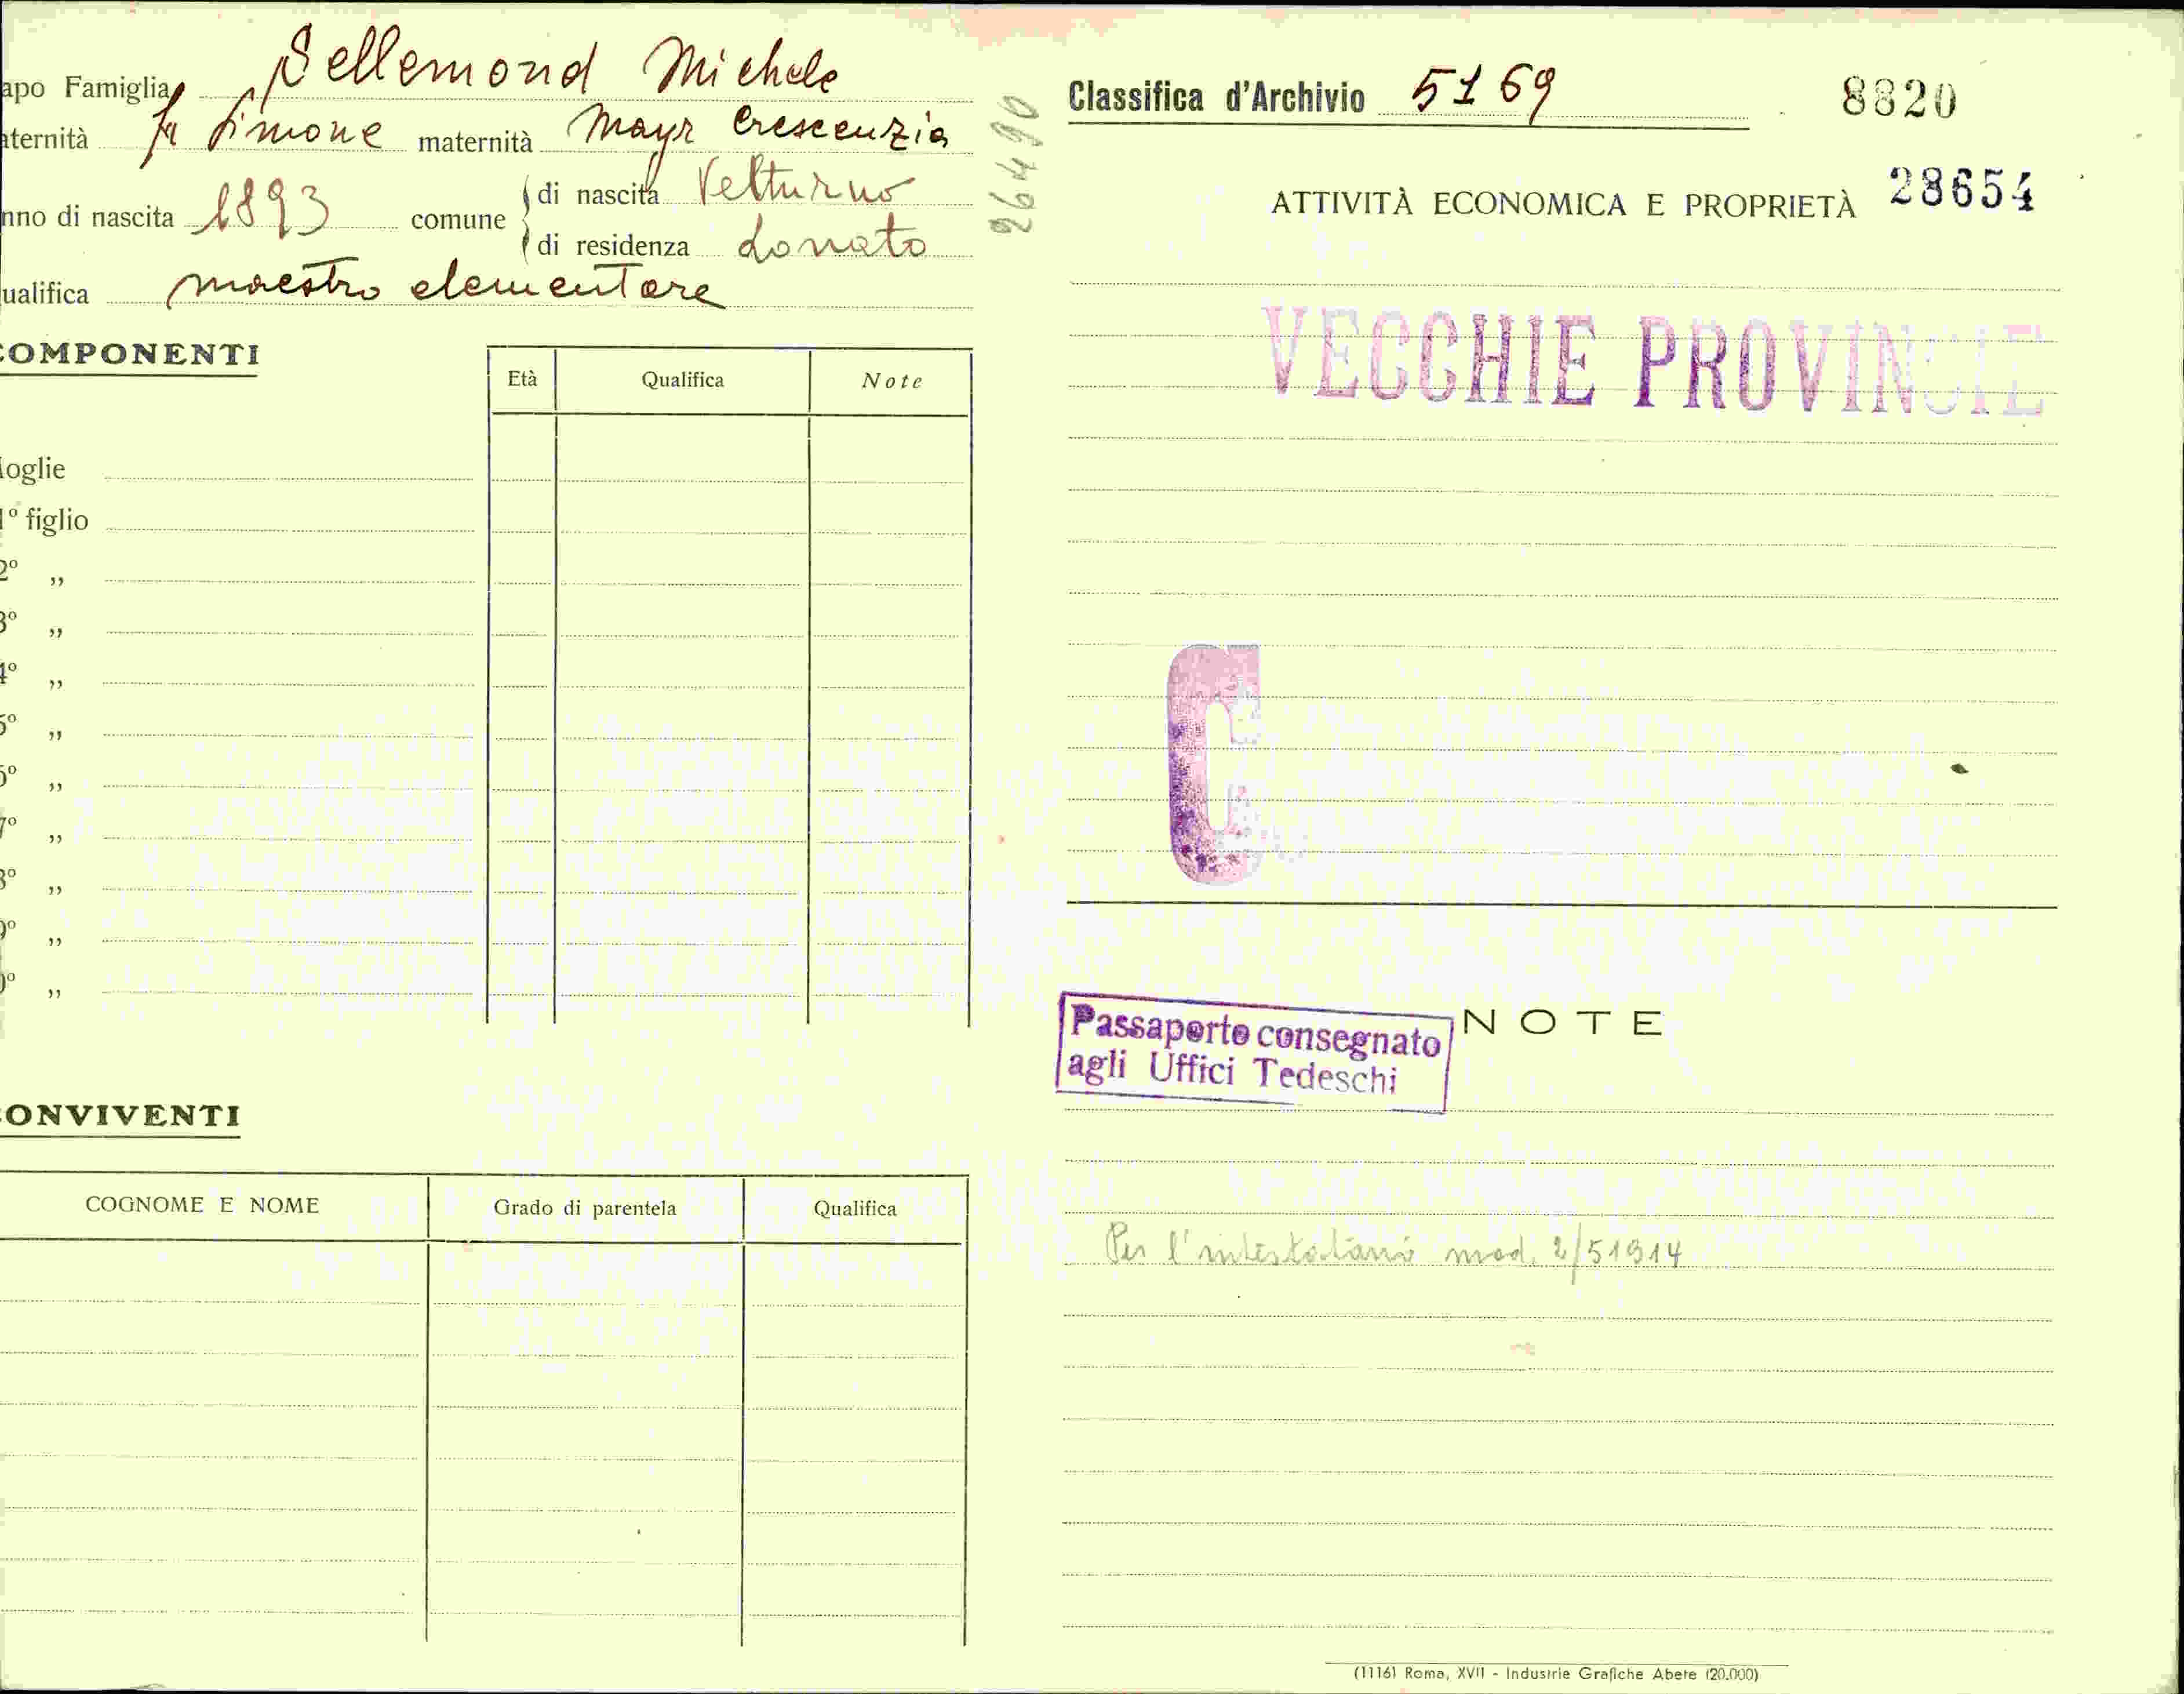 apo Famiglia Sellemond Michele
aternità fu Simone maternità Mayr Crescenzia
nno di nascita 1893 comune di nascita Velturno
di residenza Donato
ualifica maestro elementare
COMPONENTI
Età Qualifica Note
oglie
1º figlio
2º „
3º „
4º „
5º „
6º „
7º „
8º „
9º „
0º „
CONVIVENTI
COGNOME E NOME Grado di parentela Qualifica
26490
Classifica d'Archivio 5169 8820
ATTIVITÀ ECONOMICA E PROPRIETÀ 28654
VECCHIE PROVINCIE
C
Passaporto consegnato
agli Uffici Tedeschi
NOTE
Per l'intestatario mod. 2/51914
(1116) Roma, XVII - Industrie Grafiche Abete (20.000)